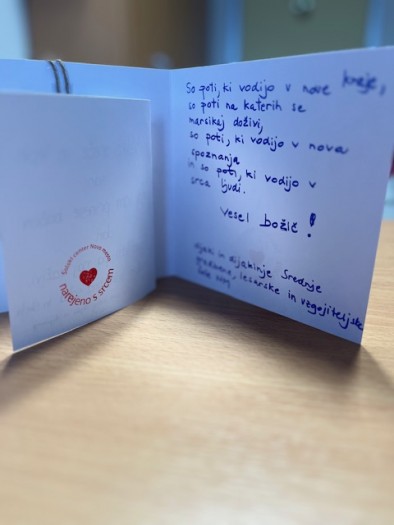 Šolski center Novo mesto
narejeno s srcem
So poti, ki vodijo v nove kraje,
so poti na katerih se
marsikaj doživi,
so poti, ki vodijo v nova
spoznanja
in so poti, ki vodijo v
srca ljudi.
Vesel božič!
dijaki in dijakinje Srednje
gradbene, lesarske in vzgojiteljske
šole